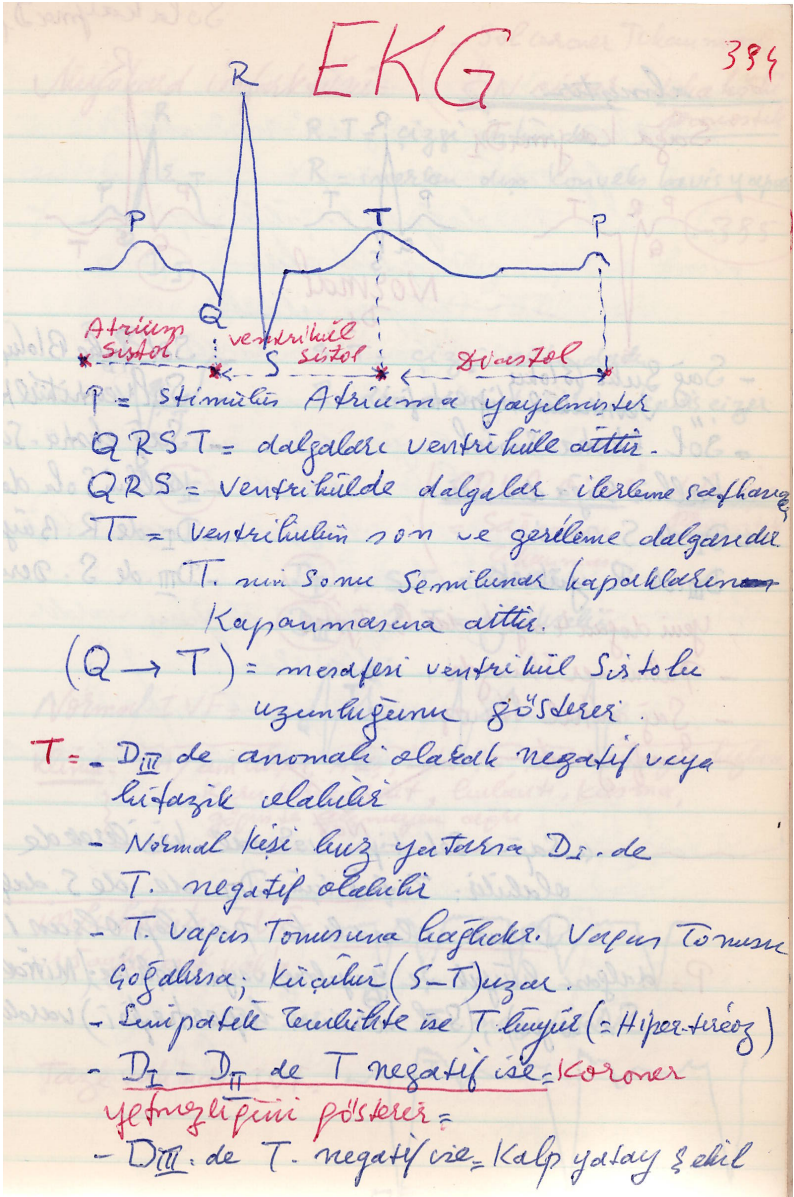 EKG
394
R
P
T
P
Q
S
Atrium
Sistol
ventrikül
Sistol
Diastol
P = Stimülüs Atriuma yayılmıştır
QRST = dalgaları ventriküle aittir.
QRS = ventrikülde dalgalar ilerleme safhası
T = ventrikulün son ve gerileme dalgasıdır
T. nin sonu Semilunar kapakların
Kapanmasına aittir.
(Q → T) = mesafesi ventrikül Sistolu
uzunluğunu gösterir.
T = - DIII de anomali olarak negatif veya
bifazik olabilir
- Normal kişi buz yutarsa DI. de
T. negatif olabilir
- T. Vagus Tonusuna bağlıdır. Vagus Tonusu
Çoğalırsa; Küçülür (S-T) uzar.
- Simpatik Tenbihte ise T büyür (= Hiper-tireoz)
- DI - DII de T negatif ise = Koroner
yetmezliğini gösterir =
- DIII. de T. negatif ise = Kalp yatay şekil